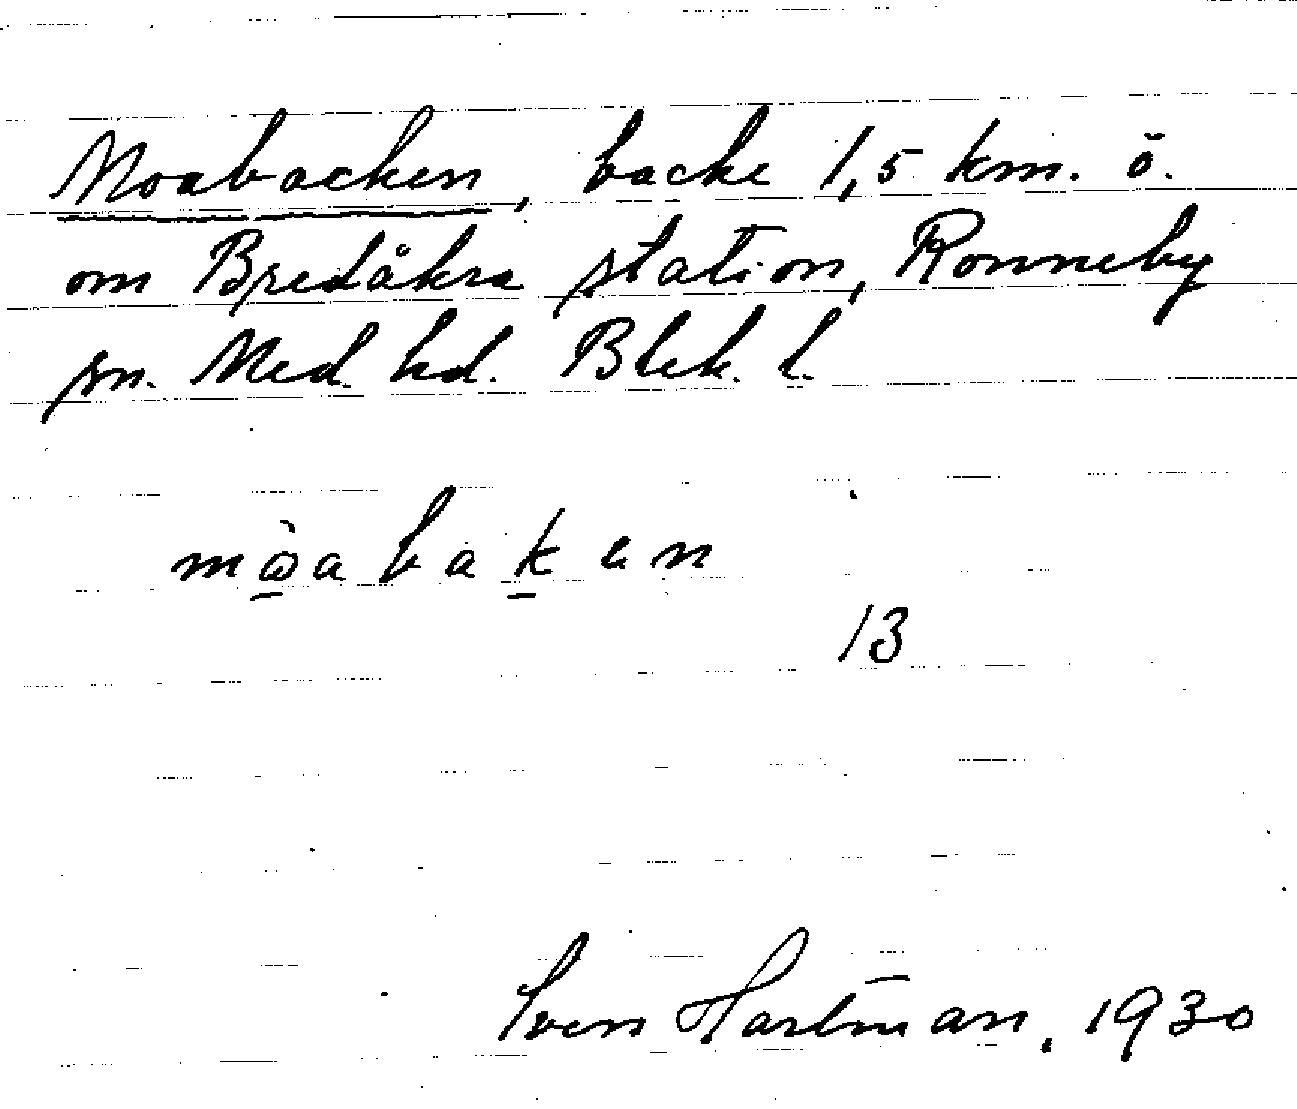 Moabacken, backe 1,5 km. ö.
om Bredåkra station, Ronneby
sn. Med. hd. Blek. l.
mòabaken
13
Sven Hartman. 1930